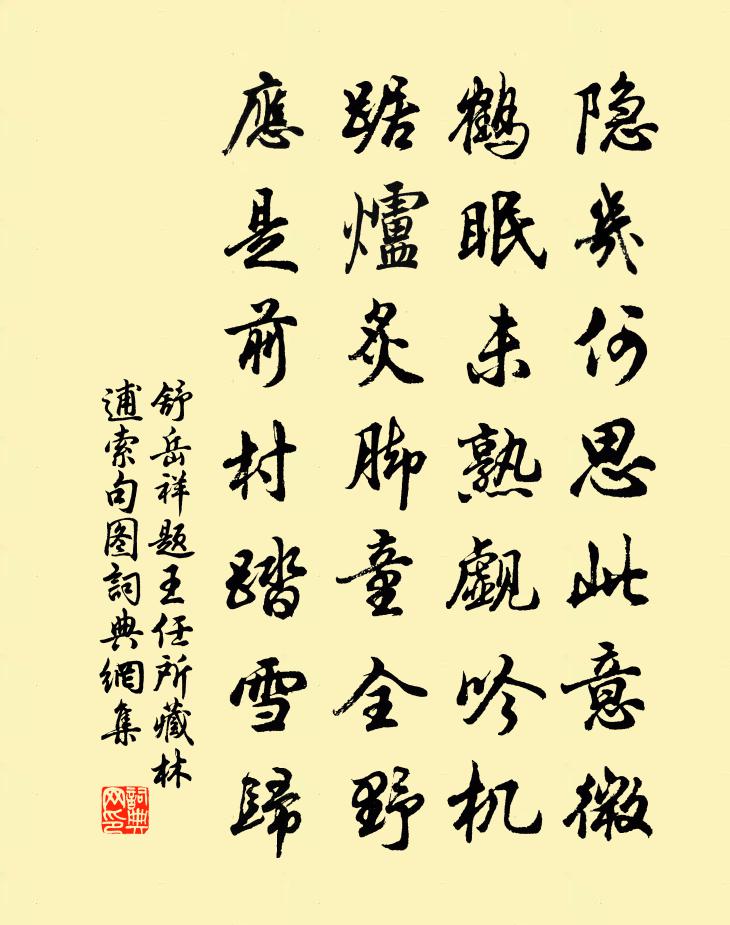 隐幾何思此意微
鹤眠未熟觑吟机
踞爐炙脚童全野
應是前村踏雪歸
舒岳祥題王任所藏林
逋索句图詞典網集
詞典网印